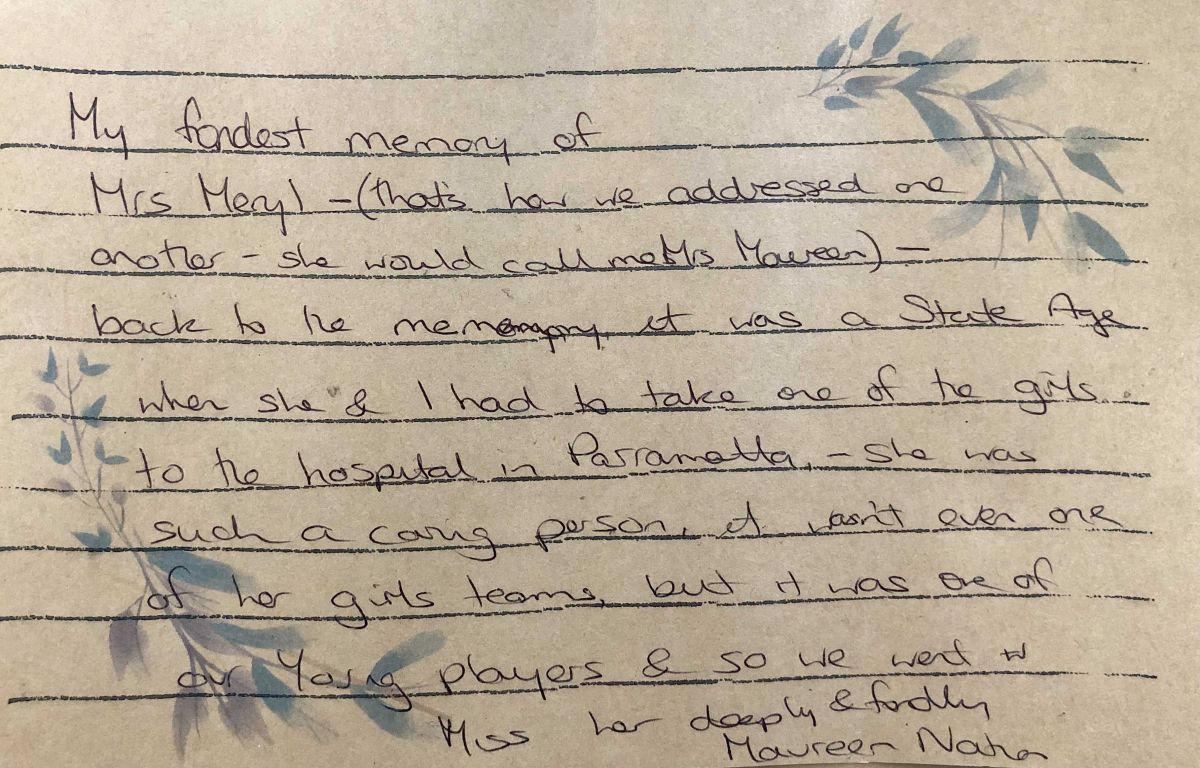 My fondest memory of
Mrs Meryl - (that's how we addressed one
another - she would call me Mrs Maureen) -
back to the memory, it was a State Age
when she & I had to take one of the girls
to the hospital in Parramatta, - she was
such a caring person, it wasn't even one
of her girls teams, but it was one of
our young players & so we went
Miss her deeply & fondly
Maureen